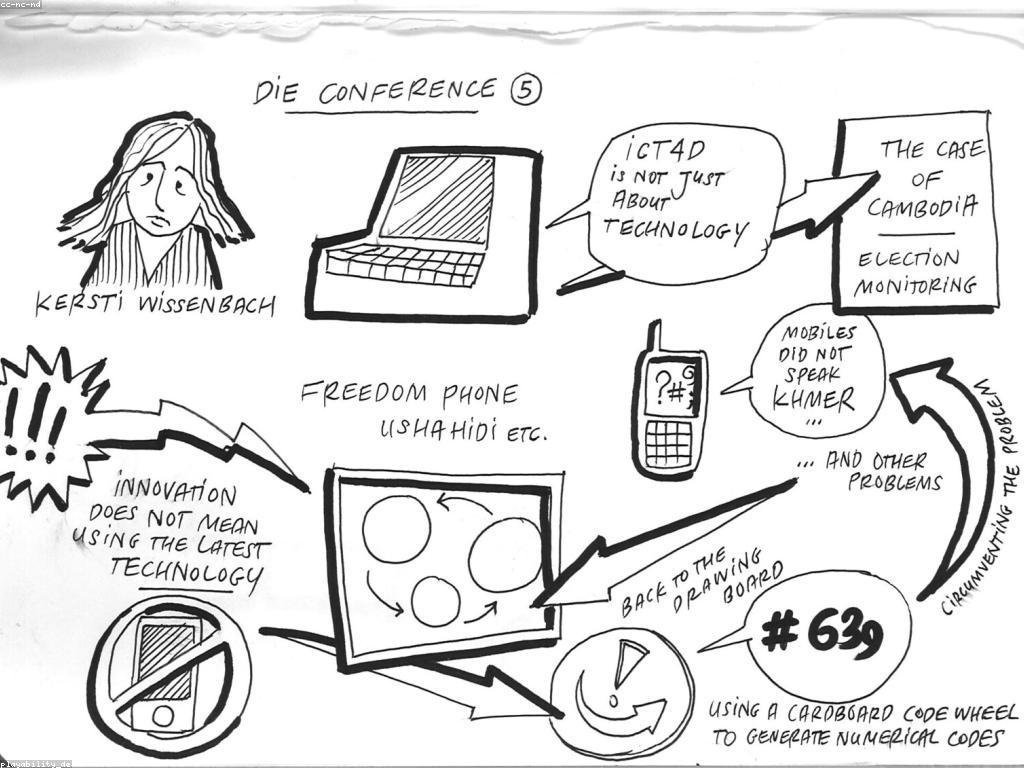 cc-nc-nd
DIE CONFERENCE 5
KERSTI WISSENBACH
ICT4D
IS NOT JUST
ABOUT
TECHNOLOGY
THE CASE
OF
CAMBODIA
ELECTION
MONITORING
MOBILES
DID NOT
SPEAK
KHMER
...
?#
... AND OTHER
PROBLEMS
CIRCUMVENTING THE PROBLEM
!!!
FREEDOM PHONE
USHAHIDI ETC.
INNOVATION
DOES NOT MEAN
USING THE LATEST
TECHNOLOGY
BACK TO THE
DRAWING
BOARD
# 639
USING A CARDBOARD CODE WHEEL
TO GENERATE NUMERICAL CODES
playability_de